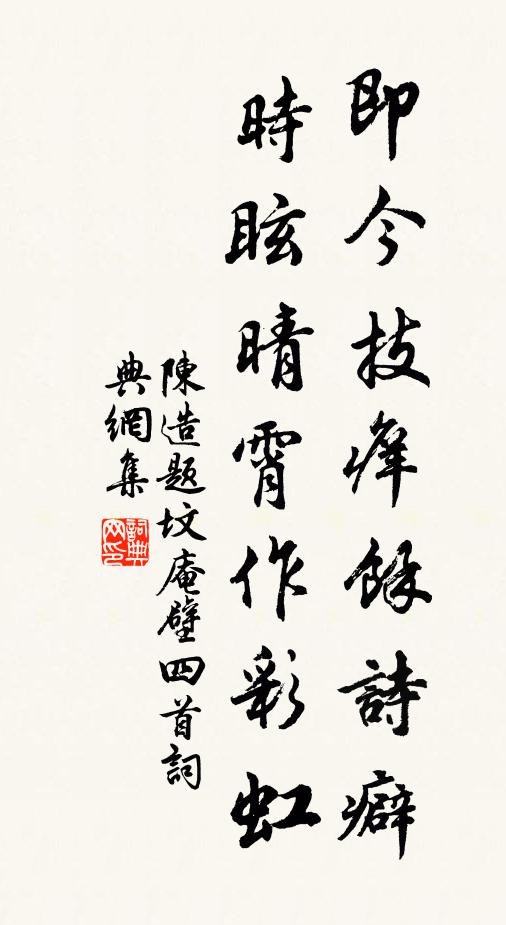 即今技癢餘詩癖
時眩晴霄作彩虹
陳造題坟庵壁四首詞
典網集
詞典网印